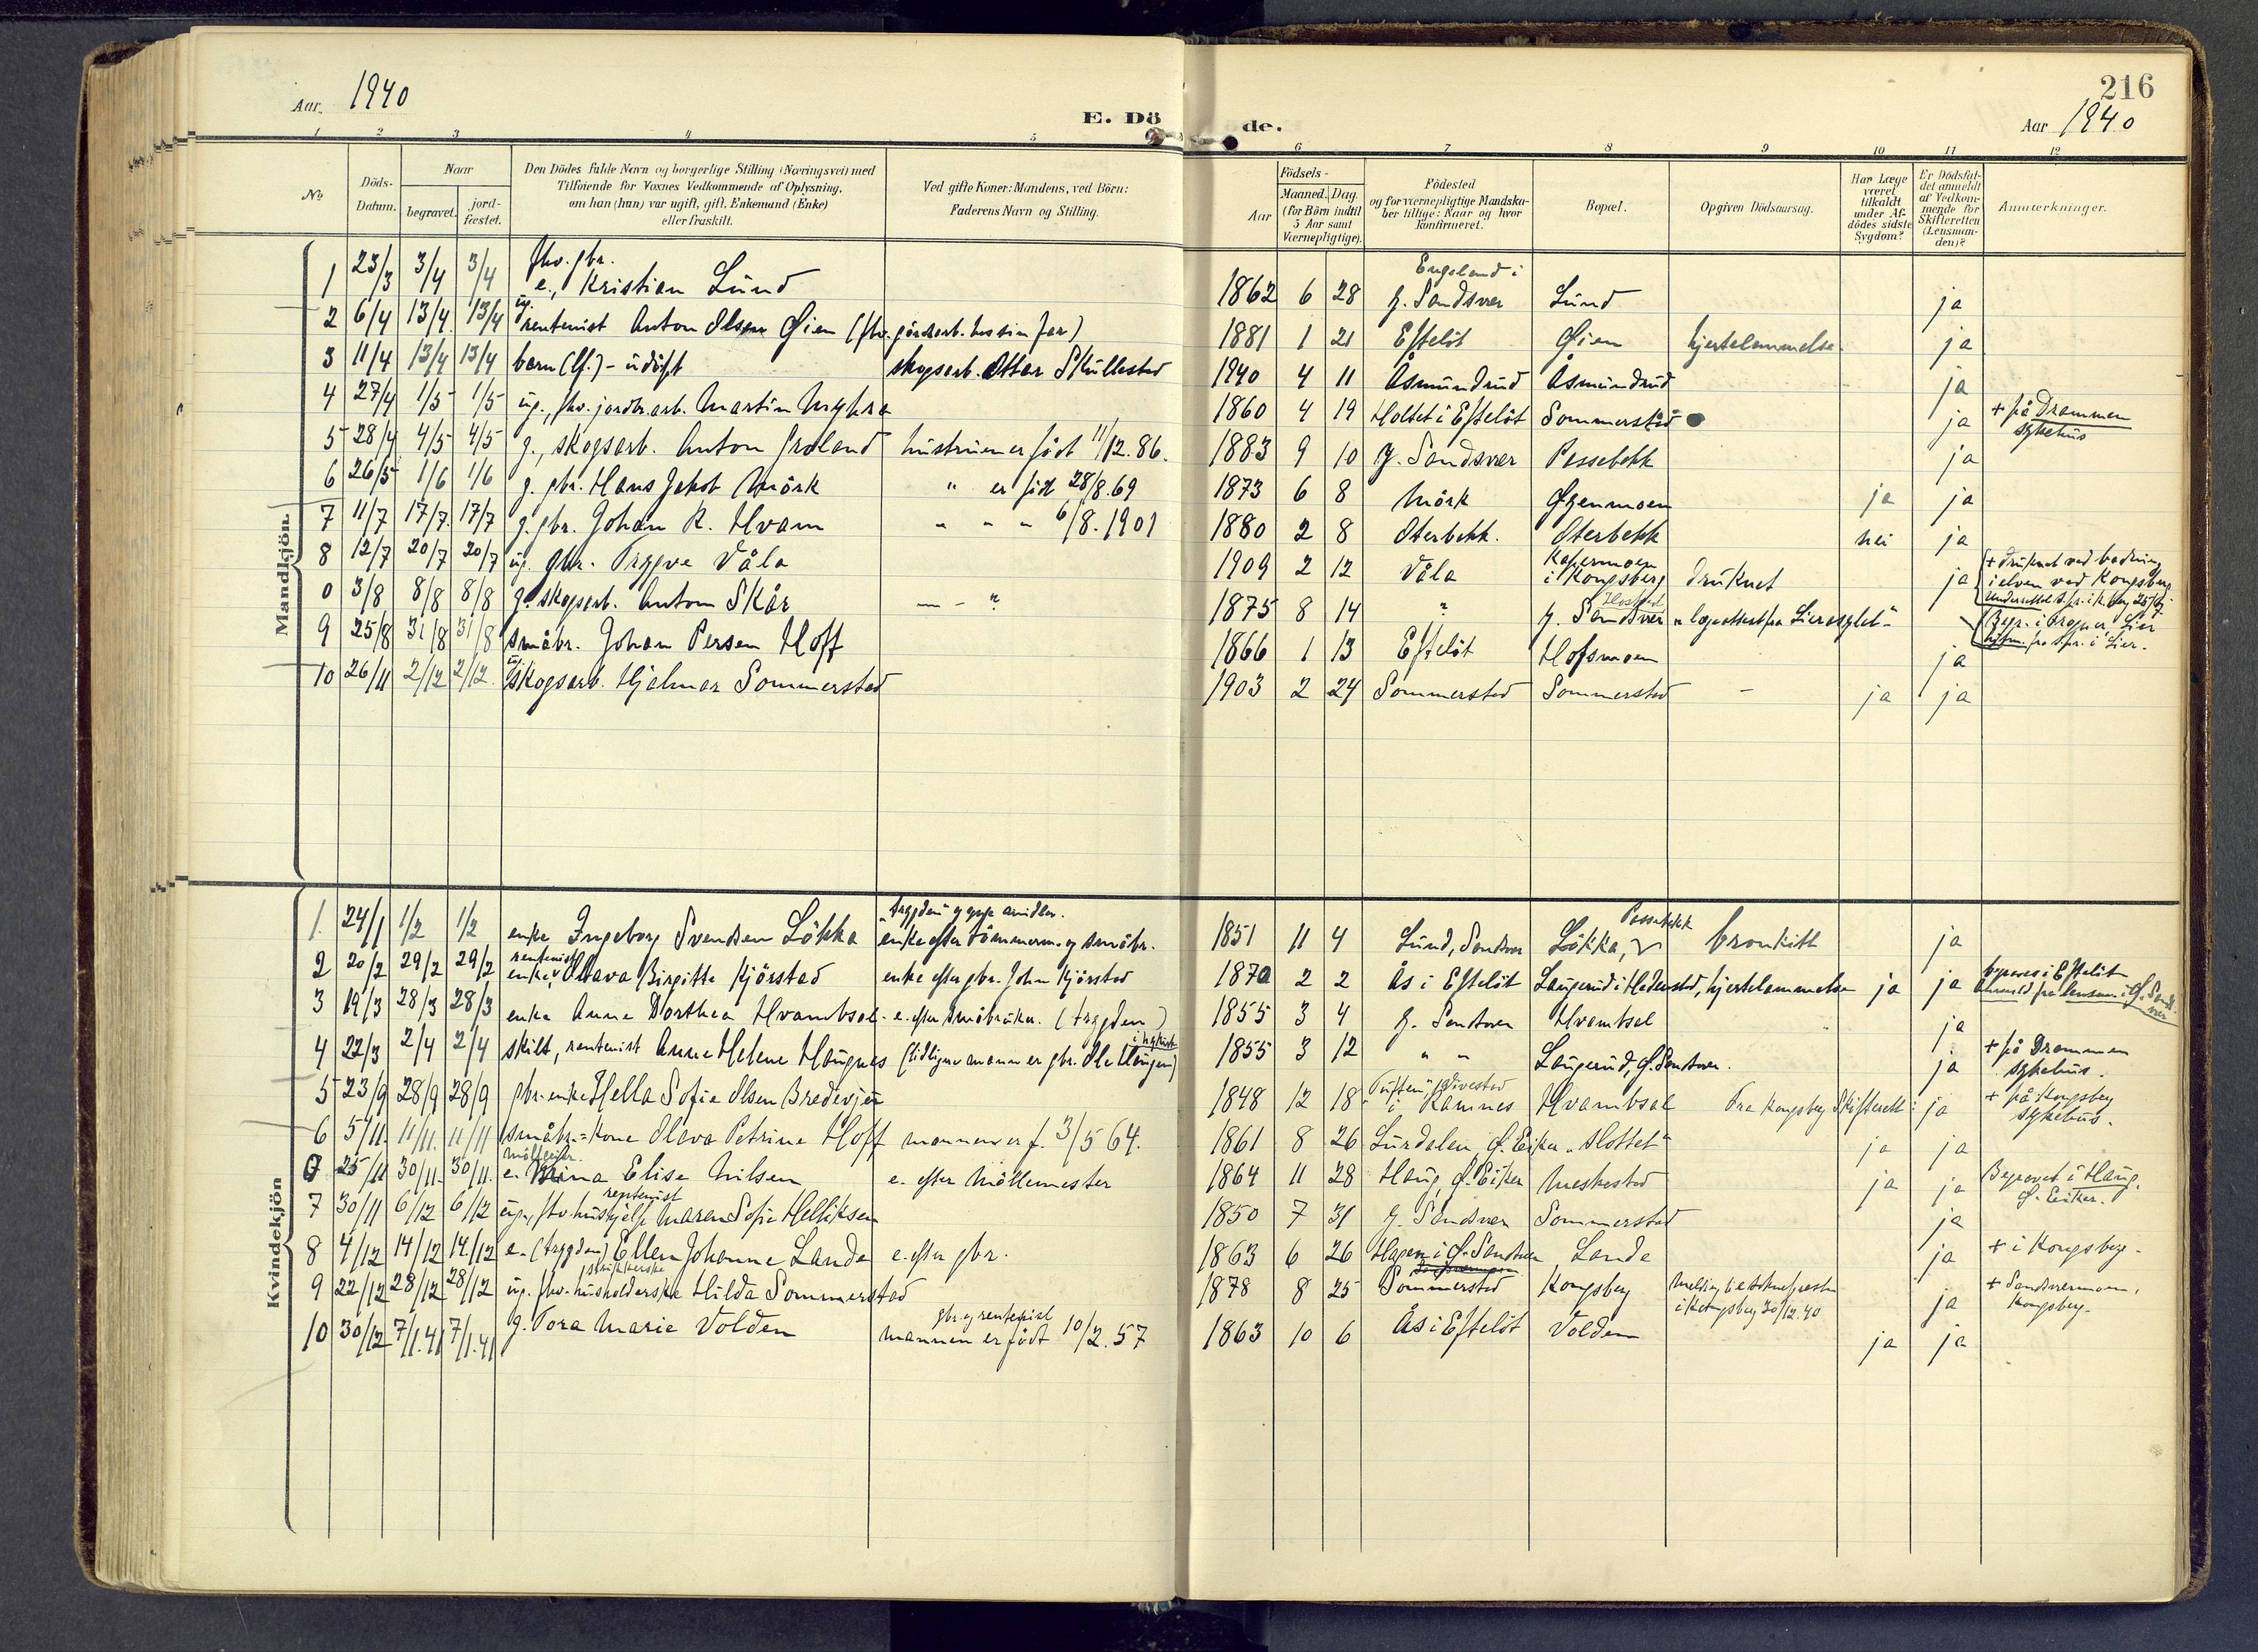 Aar 1940
E. Dö
de.
216
Aar 1940
1 2 3 4 5 6 7 8 9 10 11 12
No
Döds-Datum.
Naar
begravet.
jord-fæstet.
Den Dödes fulde Navn og borgerlige Stilling (Næringsvei) med
Tilføiende for Voxnes Vedkommende af Oplysning,
om han (hun) var ugift, gift, Enkemand (Enke)
eller fraskilt.
Ved gifte Koner: Mandens, ved Börn:
Faderens Navn og Stilling.
Födsels-
Aar
Maaned. Dag.
(for Börn indtil
5 Aar samt
Værnepligtige).
Födested
og for værnepligtige Mandska-
ber tillige: Naar og hvor
konfirmeret.
Bopæl.
Opgiven Dödsaarsag.
Har Læge
været
tilkaldt
under Af-
dödes sidste
Sygdom?
Er Dödsfal-
det anmeldt
af Vedkom-
mende for
Skifteretten
(Lensman-
den)?
Anmærkninger.
Mandkjön.
1 23/3 3/4 3/4 fhv. gbr. e., Kristian Lund 1862 6 28 Engeland i Y. Sandsvær Lund ja
2 6/4 13/4 13/4 ug. rentenist Anton Olsen Øien (fhv. gårdsarb. hos sin far) 1881 1 21 Efteløt Øien hjertelammelse ja
3 11/4 13/4 13/4 barn (lf.) - udøpt skogsarb. Ottar Skullestad 1940 4 11 Åsmundrud Åsmundrud ja
4 27/4 1/5 1/5 ug., fhv. jordbr.arb. Martin Myhre 1860 4 19 Holtet i Efteløt Sommerstad ja + på Drammen sykehus
5 28/4 4/5 4/5 g., skogsarb. Anton Froland hustruen er født 11/12.86. 1883 9 10 Y. Sandsvær Passebekk ja
6 26/5 1/6 1/6 g. gbr. Hans Jakob Mørk " er født 28/8.69 1873 6 8 Mørk Øgenmoen ja ja
7 11/7 17/7 17/7 g. gbr. Johan R. Hvam " " " 6/8.1901 1880 2 8 Oterbekk. Oterbekk nei ja
8 12/7 20/7 20/7 ug. gbr. Trygve Våla 1909 2 12 Våla i Kongsberg druknet ja + druknet ved badning i elven ved Kongsberg
0 3/8 8/8 8/8 g. skogsarb. Anton Skår — - ? 1875 8 14 ? Y. Sandsvær Hostvedt " lægeattest fra Lierasylet" Begr. i Frogner Lier
9 25/8 31/8 31/8 småbr. Johan Persen Hoff 1866 1 13 Efteløt Hofsmoen ja
10 26/11 2/12 2/12. ug. skogsarb. Hjalmar Sommerstad 1903 2 24 Sommerstad Sommerstad - ja ja
Kvindekjön
1. 24/1 1/2 1/2 enke Ingeborg Svendsen Løkka enke efter tømmerm. og småbr. 1851 11 4 Lund, Sandsvær Løkka, Passebekk bronkitt ja
2 20/2 29/2 29/2 rentenist enke Olava Birgitte Kjørstad enke efter gbr. John Kjørstad 1870 2 2 Ås i Efteløt Laugerud i Hedenstad, hjertelammelse ja ja begraves i Efteløt
3 19/3 28/3 28/3 enke Anne Dorthea Hvambsal - e. efter småbruker. (trygden) 1855 3 4 Y. Sandsvær Hvambsal ja
4 22/3 2/4 2/4 skilt, rentenist Anne Helene Haugnes (tidligere mann er gbr. Ole Haugen) 1855 3 12 " " Laugerud, Ø. Sandsvær. ja + på Drammen sykehus.
5 23/9 28/9 28/9 gbr-enke Hella Sofie Olsen Bredevjen 1848 12 18 i Ramnes Hvambsal Fra Kongsberg Skifterett: ja + på Kongsberg sykehus.
6 5/11. 11/11. 11/11 småbr.=kone Olava Petrine Hoff mannen er f. 3/5 64. 1861 8 26 Lurdalen, Ø. Eiker "Slottet" ja ja
0 25/11 30/11. 30/11. e. Elise Nilsen e. efter Møllemester 1864 11 28 Haug, Ø. Eiker Meskestad ja ja Begravet i Haug, Ø. Eiker.
7 30/11 6/12 6/12 ug., fhv. hushjelp rentenist Maren Sofie Helliksen 1850 7 31 Y. Sandsvær Sommerstad ja
8 4/12 14/12 14/12 e. (trygden) Ellen Johanne Lande e. efter gbr. 1863 6 26 Hagen i Ø. Sandsvær Lande ja + i Kongsberg.
9 22/12 28/12 28/12 ug. fhv. husholderske Hilda Sommerstad 1878 8 25 Sommerstad Kongsberg i Kongsberg 30/12.40 ja + Sandsværmoen, Kongsberg.
10 30/12 7/1.41 7/1.41 g. Tora Marie Volden gbr. og rentenist mannen er født 10/2.57 1863 10 6 Ås i Efteløt Volden ja ja